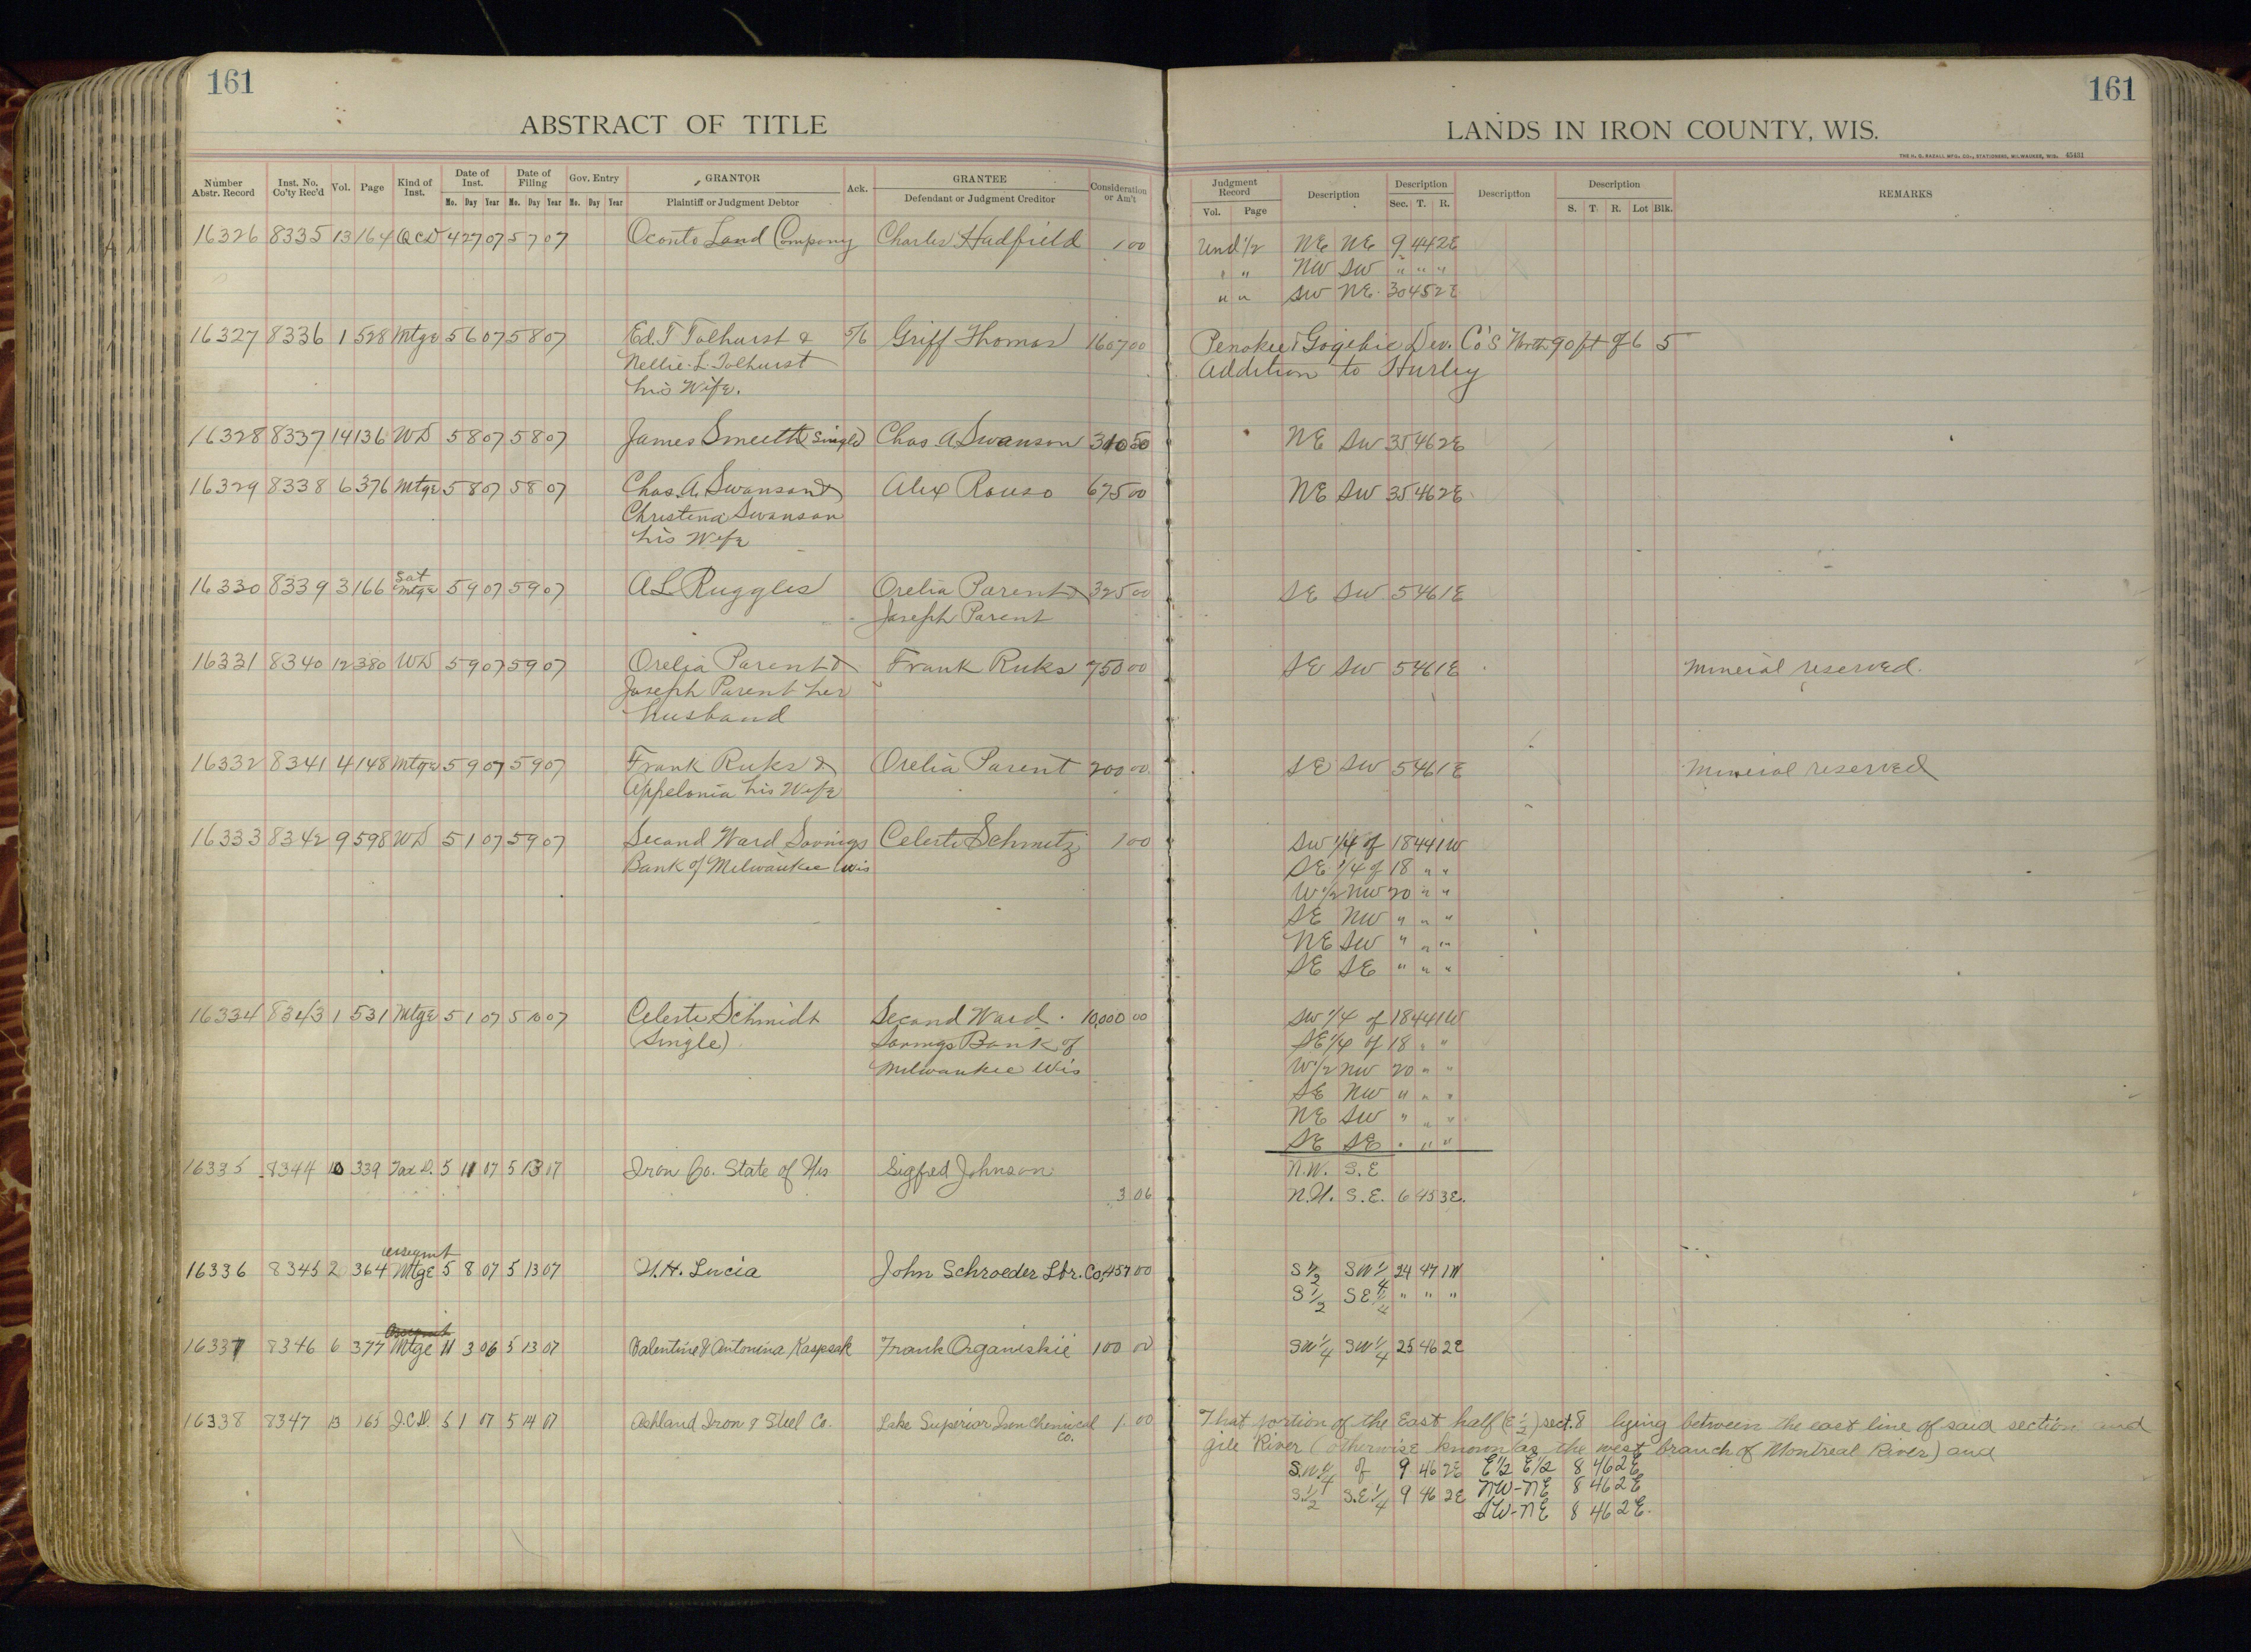 161
161
ABSTRACT OF TITLE
LANDS IN IRON COUNTY, WIS.
THE H. G. RAZALL MFG. CO., STATIONERS, MILWAUKEE, WIS. 45431
Number Abstr. Record | Inst. No. Co'ty Rec'd | Vol. | Page | Kind of Inst. | Date of Inst. Mo. Day Year | Date of Filing Mo. Day Year | Gov. Entry Mo. Day Year | GRANTOR Plaintiff or Judgment Debtor | Ack. | GRANTEE Defendant or Judgment Creditor | Consideration or Am't
Judgment Record Vol. Page | Description | Description Sec. T. R. | Description | Description S. T. R. Lot Blk. | REMARKS
16326 8335 13 164 QCD 4 27 07 5 7 07 Oconto Land Company Charles Hadfield 1 00 Und 1/2 NE NE 9 44 2E
" " NW SW " " "
" " SW NE 30 45 2E
16327 8336 1 528 Mtge 5 6 07 5 8 07 Ed. T Tolhurst & 5/6 Griff Thomas 1607 00 Penokee & Gogebic Dev. Co's North 90 ft of 6 5
Nellie L. Tolhurst Addition to Hurley
his Wife.
16328 8337 14 136 WD 5 8 07 5 8 07 James Smeeth (Single) Chas A Swanson 310 50 NE SW 35 46 2E
16329 8338 6 376 Mtge 5 8 07 5 8 07 Chas. A. Swanson & Alex Rouso 675 00 NE SW 35 46 2E
Christina Swanson
his Wife
16330 8339 3 166 Sat Mtge 5 9 07 5 9 07 A L Ruggles Orelia Parent & 325 00 SE SW 5 46 1E
Joseph Parent
16331 8340 12 380 WD 5 9 07 5 9 07 Orelia Parent & Frank Ruks 750 00 SE SW 5 46 1E Mineral reserved.
Joseph Parent her
husband
16332 8341 4 148 Mtge 5 9 07 5 9 07 Frank Ruks & Orelia Parent 200 00 SE SW 5 46 1E Mineral reserved
Appelonia his Wife
16333 8342 9 598 WD 5 1 07 5 9 07 Second Ward Savings Celeste Schmitz 1 00 SW 1/4 of 18 44 1W
Bank of Milwaukee Wis SE 1/4 of 18 " "
W 1/2 NW 20 " "
SE NW " " "
NE SW " " "
SE SE " " "
16334 8343 1 531 Mtge 5 1 07 5 10 07 Celeste Schmidt Second Ward 10,000 00 SW 1/4 of 18 44 1W
(Single) Savings Bank of SE 1/4 of 18 " "
Milwaukee Wis W 1/2 NW 20 " "
SE NW " " "
NE SW " " "
SE SE " " "
16335 8344 10 339 Tax D. 5 11 07 5 13 07 Iron Co. State of Wis Sigfred Johnson N.W. S.E
3 06 N.W. S.E. 6 45 3E.
16336 8345 2 364 assegmt Mtge 5 8 07 5 13 07 H. Lucia John Schroeder Lbr. Co. 457 00 S 1/2 SW 1/4 24 47 1W
S 1/2 SE 1/4 " " "
16337 8346 6 377 Assegmt Mtge 11 3 06 5 13 07 Valentine & Antonina Kaspsak Frank Organiskie 100 00 SW 1/4 SW 1/4 25 46 2E
16338 8347 13 165 Q.C.D. 5 1 07 5 14 07 Ashland Iron & Steel Co. Lake Superior Iron Chemical Co. 1 00 That portion of the East half (E 1/2) sect. 8 lying between the east line of said section and
gile River (otherwise known as the west branch of Montreal River) and
S.W 1/4 of 9 46 2E E 1/2 E 1/2 8 46 2E
S. 1/2 S.E 1/4 9 46 2E NW-NE 8 46 2E
SW-NE 8 46 2E.